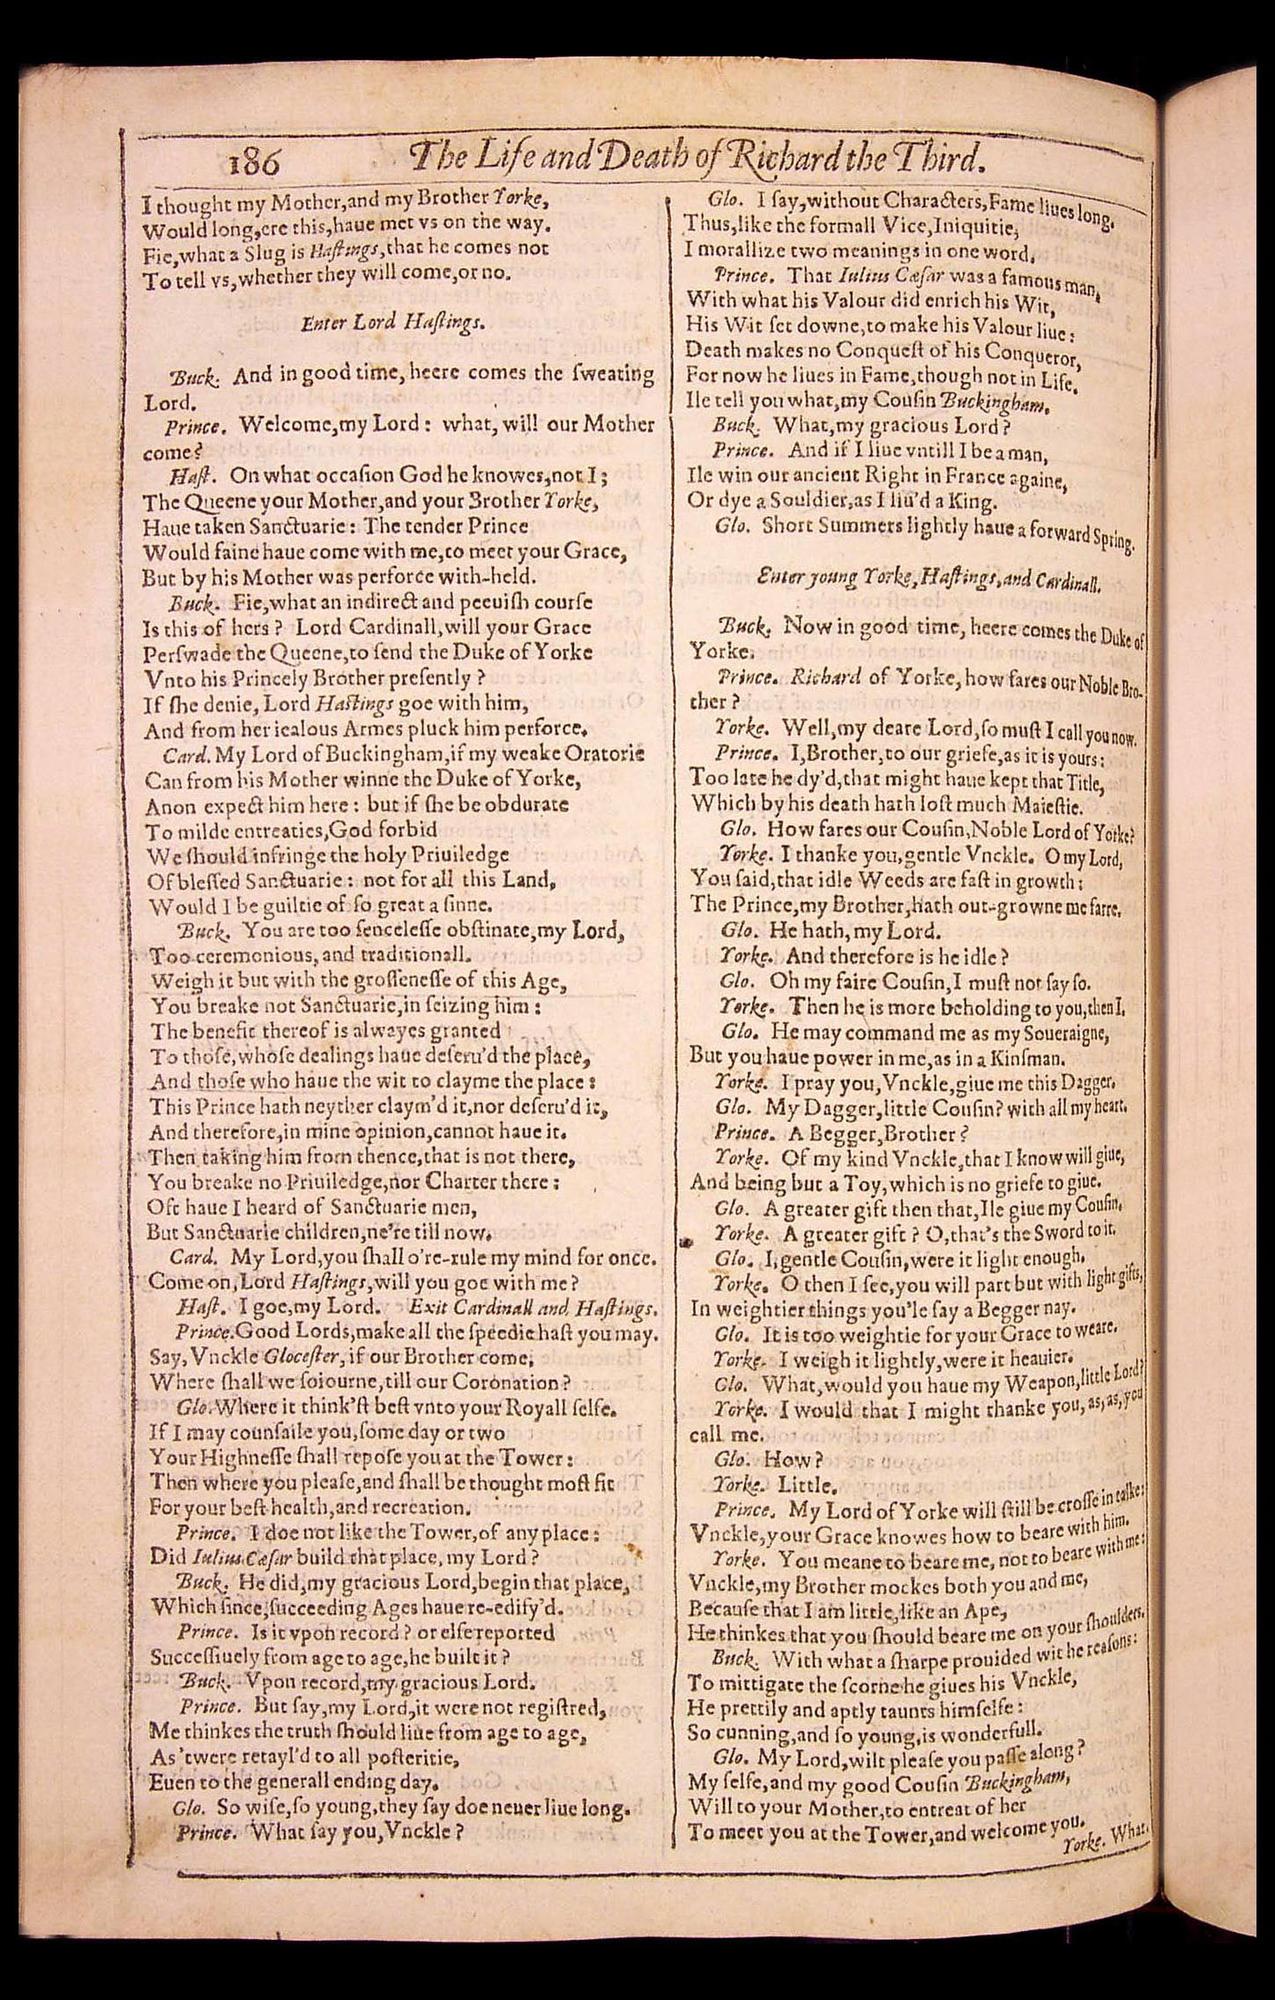 186
The Life and Death of Richard the Third.
I thought my Mother,and my Brother Yorke,
Would long,ere this,haue met vs on the way.
Fie,what a Slug is Haſtings,that he comes not
To tell vs,whether they will come,or no.
Enter Lord Haſtings.
Buck. And in good time, heere comes the ſweating
Lord.
Prince. Welcome,my Lord: what, will our Mother
come?
Haſt. On what occaſion God he knowes,not I;
The Queene your Mother,and your Brother Yorke,
Haue taken Sanctuarie: The tender Prince
Would faine haue come with me,to meet your Grace,
But by his Mother was perforce with-held.
Buck. Fie,what an indirect and peeuiſh courſe
Is this of hers? Lord Cardinall,will your Grace
Perſwade the Queene,to ſend the Duke of Yorke
Vnto his Princely Brother preſently?
If ſhe denie, Lord Haſtings goe with him,
And from her iealous Armes pluck him perforce.
Card. My Lord of Buckingham,if my weake Oratorie
Can from his Mother winne the Duke of Yorke,
Anon expect him here: but if ſhe be obdurate
To milde entreaties,God forbid
We ſhould infringe the holy Priuiledge
Of bleſſed Sanctuarie: not for all this Land,
Would I be guiltie of ſo great a ſinne.
Buck. You are too ſenceleſſe obſtinate,my Lord,
Too ceremonious, and traditionall.
Weigh it but with the groſſeneſſe of this Age,
You breake not Sanctuarie,in ſeizing him:
The benefit thereof is alwayes granted
To thoſe,whoſe dealings haue deſeru'd the place,
And thoſe who haue the wit to clayme the place:
This Prince hath neyther claym'd it,nor deſeru'd it,
And therefore,in mine opinion,cannot haue it.
Then taking him from thence,that is not there,
You breake no Priuiledge,nor Charter there:
Oft haue I heard of Sanctuarie men,
But Sanctuarie children,ne're till now.
Card. My Lord,you ſhall o're-rule my mind for once.
Come on,Lord Haſtings,will you goe with me?
Haſt. I goe,my Lord. Exit Cardinall and Haſtings.
Prince.Good Lords,make all the ſpeedie haſt you may.
Say,Vnckle Gloceſter,if our Brother come,
Where ſhall we ſoiourne,till our Coronation?
Glo.Where it think'ſt beſt vnto your Royall ſelfe.
If I may counſaile you,ſome day or two
Your Highneſſe ſhall repoſe you at the Tower:
Then where you pleaſe,and ſhall be thought moſt fit
For your beſt health,and recreation.
Prince. I doe not like the Tower,of any place:
Did Iulius Cæſar build that place, my Lord?
Buck. He did,my gracious Lord,begin that place,
Which ſince,ſucceeding Ages haue re-edify'd.
Prince. Is it vpon record? or elſe reported
Succeſſiuely from age to age,he built it?
Buck. Vpon record,my gracious Lord.
Prince. But ſay,my Lord,it were not regiſtred,
Me thinkes the truth ſhould liue from age to age,
As 'twere retayl'd to all poſteritie,
Euen to the generall ending day.
Glo. So wiſe,ſo young,they ſay doe neuer liue long.
Prince. What ſay you,Vnckle?
Glo. I ſay,without Characters,Fame liues long.
Thus,like the formall Vice,Iniquitie,
I morallize two meanings in one word.
Prince. That Iulius Cæſar was a famous man,
With what his Valour did enrich his Wit,
His Wit ſet downe,to make his Valour liue:
Death makes no Conqueſt of his Conqueror,
For now he liues in Fame,though not in Life.
Ile tell you what,my Couſin Buckingham.
Buck. What,my gracious Lord?
Prince. And if I liue vntill I be a man,
Ile win our ancient Right in France againe,
Or dye a Souldier,as I liu'd a King.
Glo. Short Summers lightly haue a forward Spring.
Enter young Yorke,Haſtings,and Cardinall.
Buck. Now in good time, heere comes the Duke of
Yorke.
Prince. Richard of Yorke, how fares our Noble Bro-
ther?
Yorke. Well,my deare Lord,ſo muſt I call you now.
Prince. I,Brother,to our griefe,as it is yours:
Too late he dy'd,that might haue kept that Title,
Which by his death hath loſt much Maieſtie.
Glo. How fares our Couſin,Noble Lord of Yorke?
Yorke. I thanke you,gentle Vnckle. O my Lord,
You ſaid,that idle Weeds are faſt in growth:
The Prince,my Brother,hath out-growne me farre.
Glo. He hath, my Lord.
Yorke. And therefore is he idle?
Glo. Oh my faire Couſin,I muſt not ſay ſo.
Yorke. Then he is more beholding to you,then I.
Glo. He may command me as my Soueraigne,
But you haue power in me,as in a Kinſman.
Yorke. I pray you, Vnckle,giue me this Dagger.
Glo. My Dagger,little Couſin? with all my heart.
Prince. A Begger,Brother?
Yorke. Of my kind Vnckle,that I know will giue,
And being but a Toy,which is no griefe to giue.
Glo. A greater gift then that,Ile giue my Couſin.
Yorke. A greater gift? O,that's the Sword to it.
Glo. I,gentle Couſin,were it light enough.
Yorke. O then I ſee,you will part but with light gifts,
In weightier things you'le ſay a Begger nay.
Glo. It is too weightie for your Grace to weare.
Yorke. I weigh it lightly,were it heauier.
Glo. What,would you haue my Weapon,little Lord?
Yorke. I would that I might thanke you,as,as,you
call me.
Glo. How?
Yorke. Little.
Prince. My Lord of Yorke will ſtill be croſſe in talke:
Vnckle,your Grace knowes how to beare with him.
Yorke. You meane to beare me, not to beare with me:
Vnckle,my Brother mockes both you and me,
Becauſe that I am little,like an Ape,
He thinkes that you ſhould beare me on your ſhoulders.
Buck. With what a ſharpe prouided wit he reaſons:
To mittigate the ſcorne he giues his Vnckle,
He prettily and aptly taunts himſelfe:
So cunning,and ſo young,is wonderfull.
Glo. My Lord,wilt pleaſe you paſſe along?
My ſelfe,and my good Couſin Buckingham,
Will to your Mother,to entreat of her
To meet you at the Tower,and welcome you.
Yorke. What